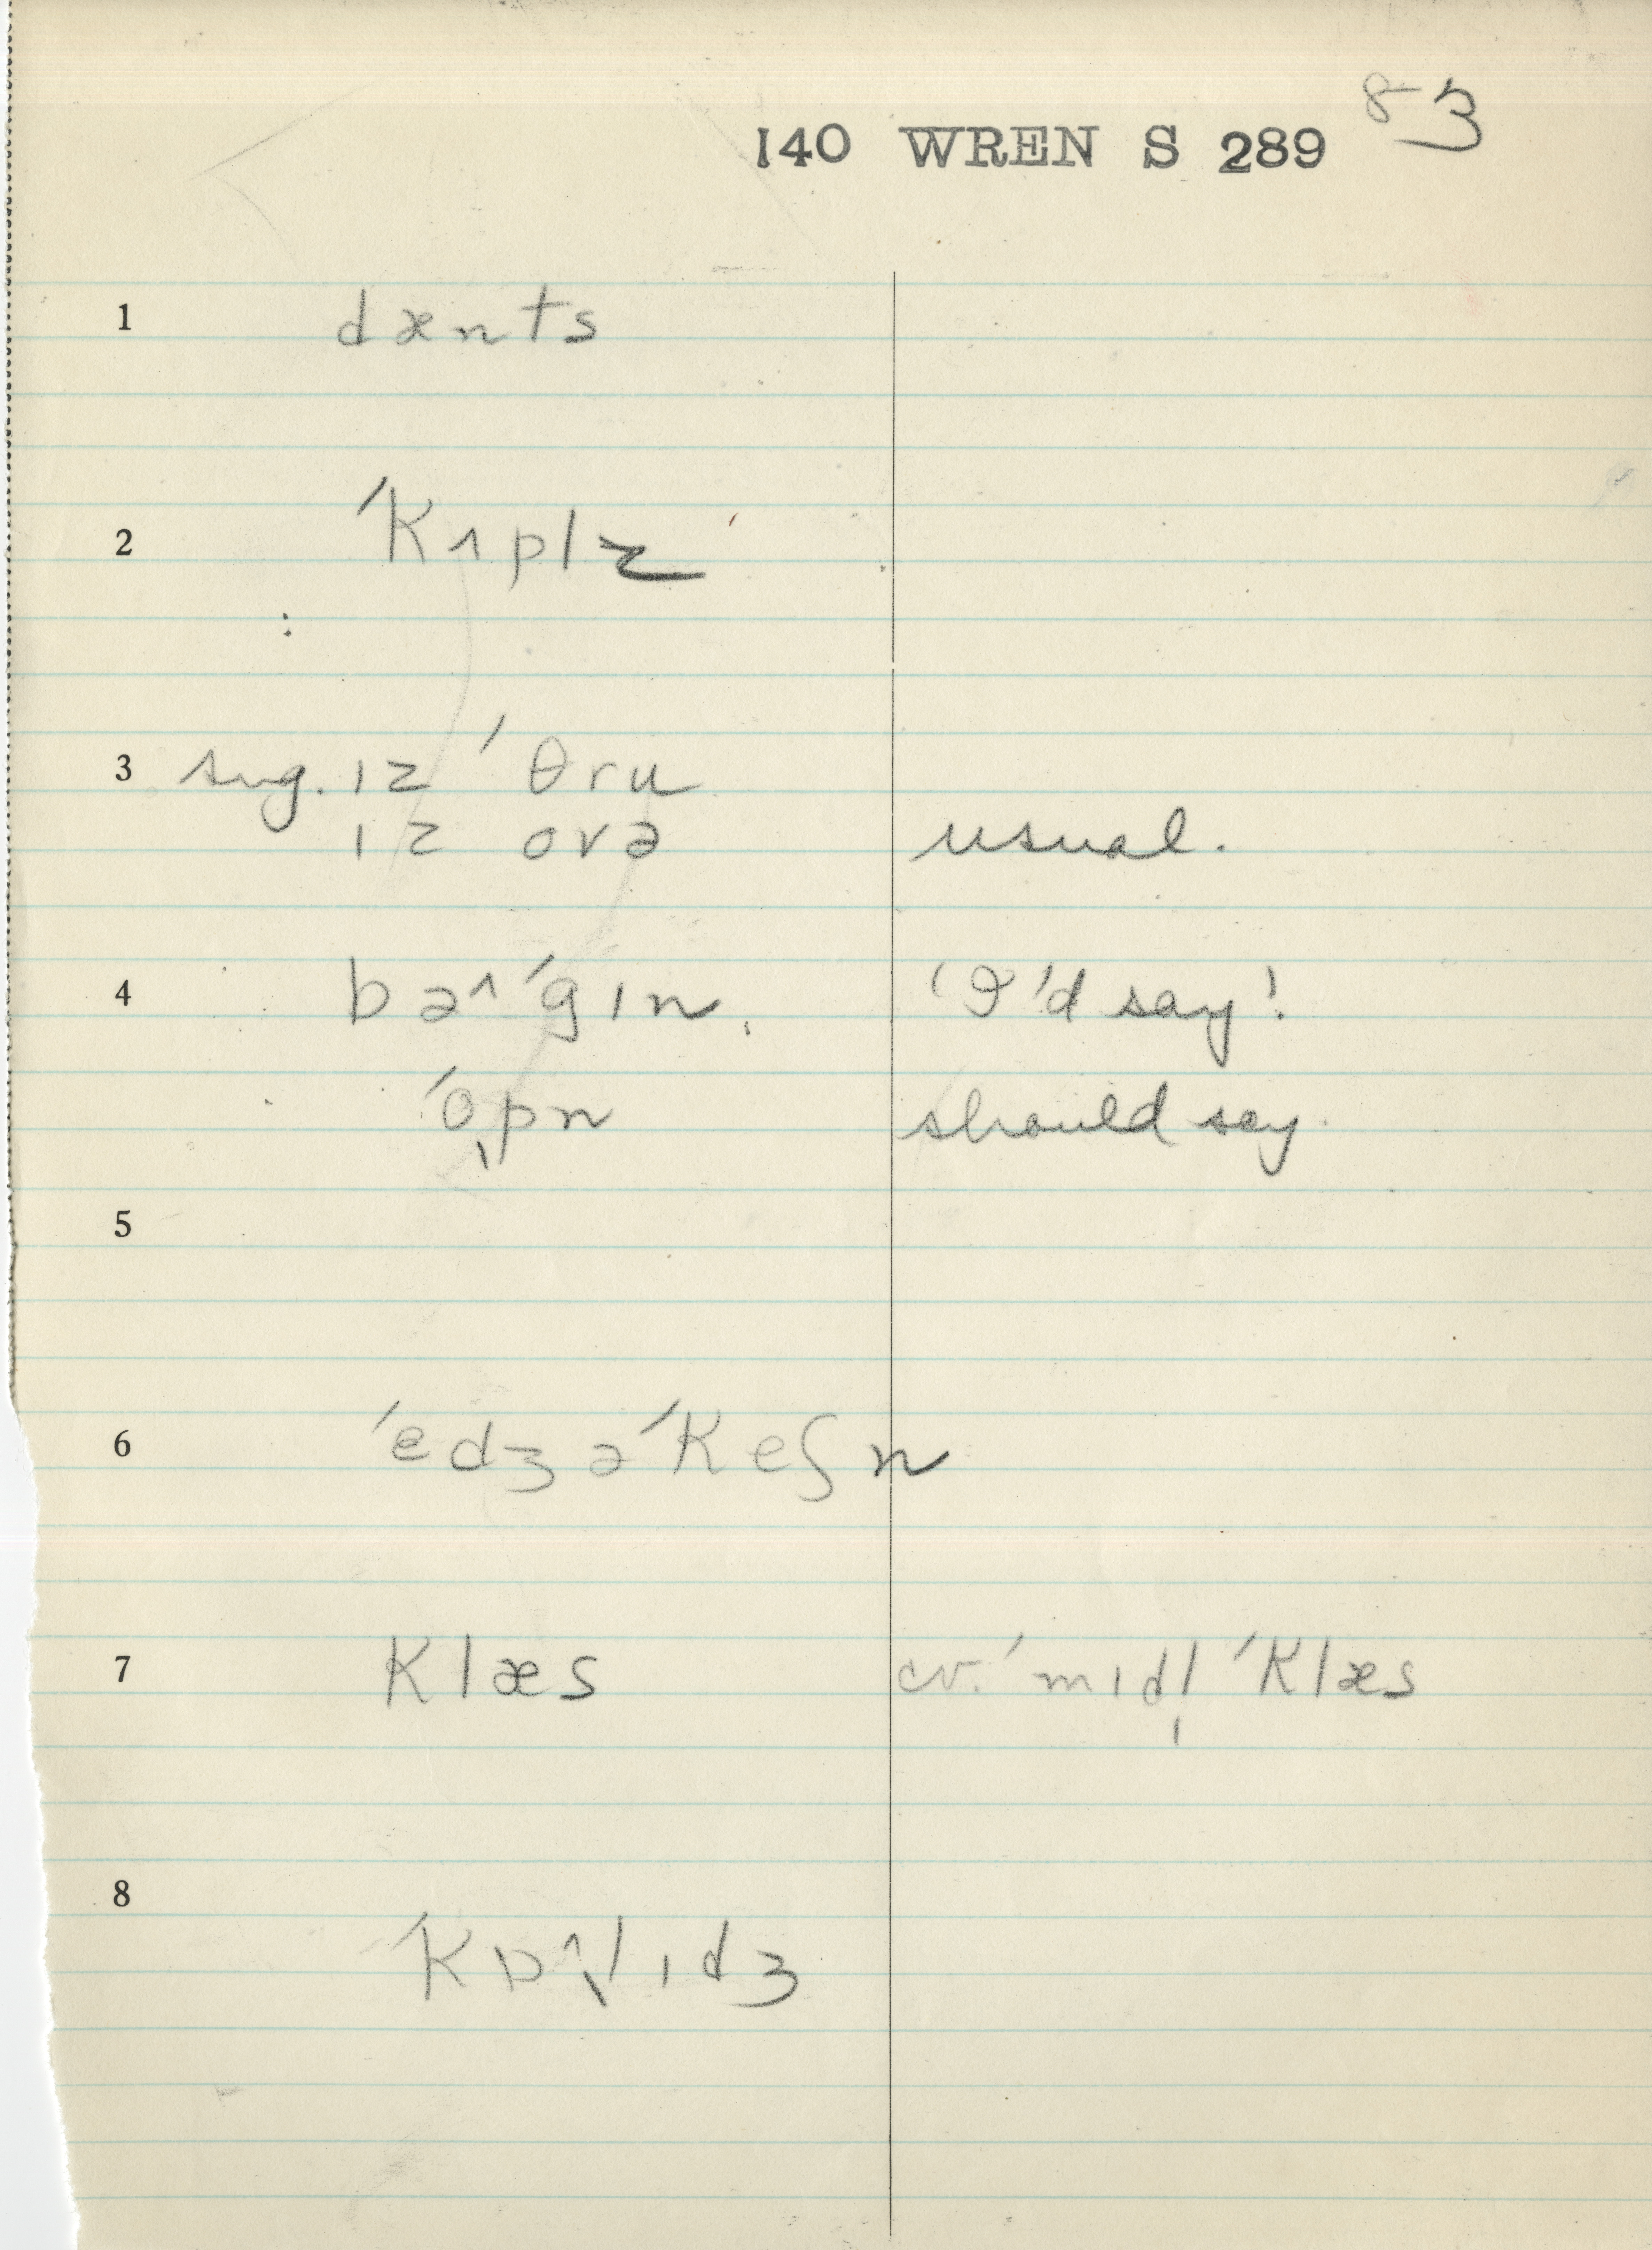 83
140 WREN S 289
1 dænts
2 ˈkʌplz
3 sug. ɪz ˈθru
ɪz ovə usual.
4 bəˆˈgɪn. 'I'd say'.
ˈopn̩ should say
5
6 ˈedʒəˈkeʃn
7 klæs cv. ˈmɪdl̩ ˈklæs
8